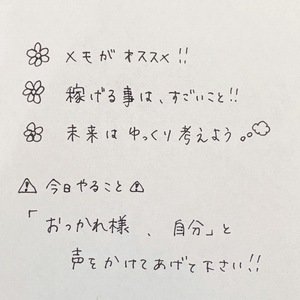 メモがオススメ!!
稼げる事は、すごいこと!!
未来はゆっくり考えよう
⚠今日やること⚠
「おっかれ様、自分」と
声をかけてあげて下さい!!